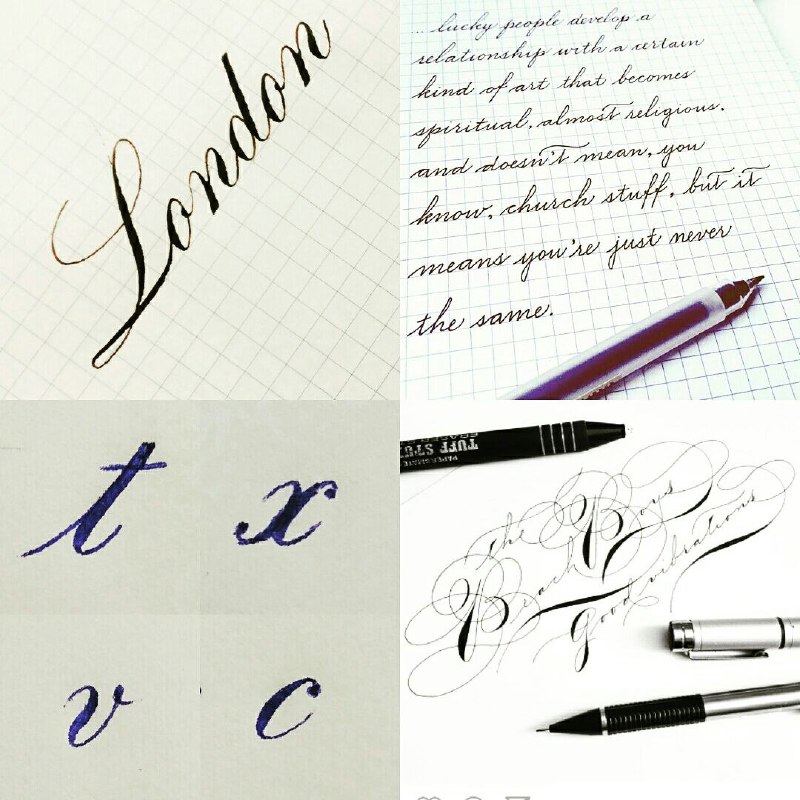 London
... lucky people develop a
relationship with a certain
kind of art that becomes
spiritual, almost religious.
and doesn't mean, you
know, church stuff, but it
means you're just never
the same.
t x
v c
TUFF STU
PAPERMATE
the Beach Boys
Good vibrations